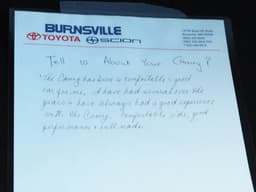 BURNSVILLE
TOYOTA SCION
Tell Us About Your Camry?
The Camry has been a comfortable & good
car for me. I have had several over the
years & have always had a good experience
with the Camry. Comfortable ride, good
performance & well made.